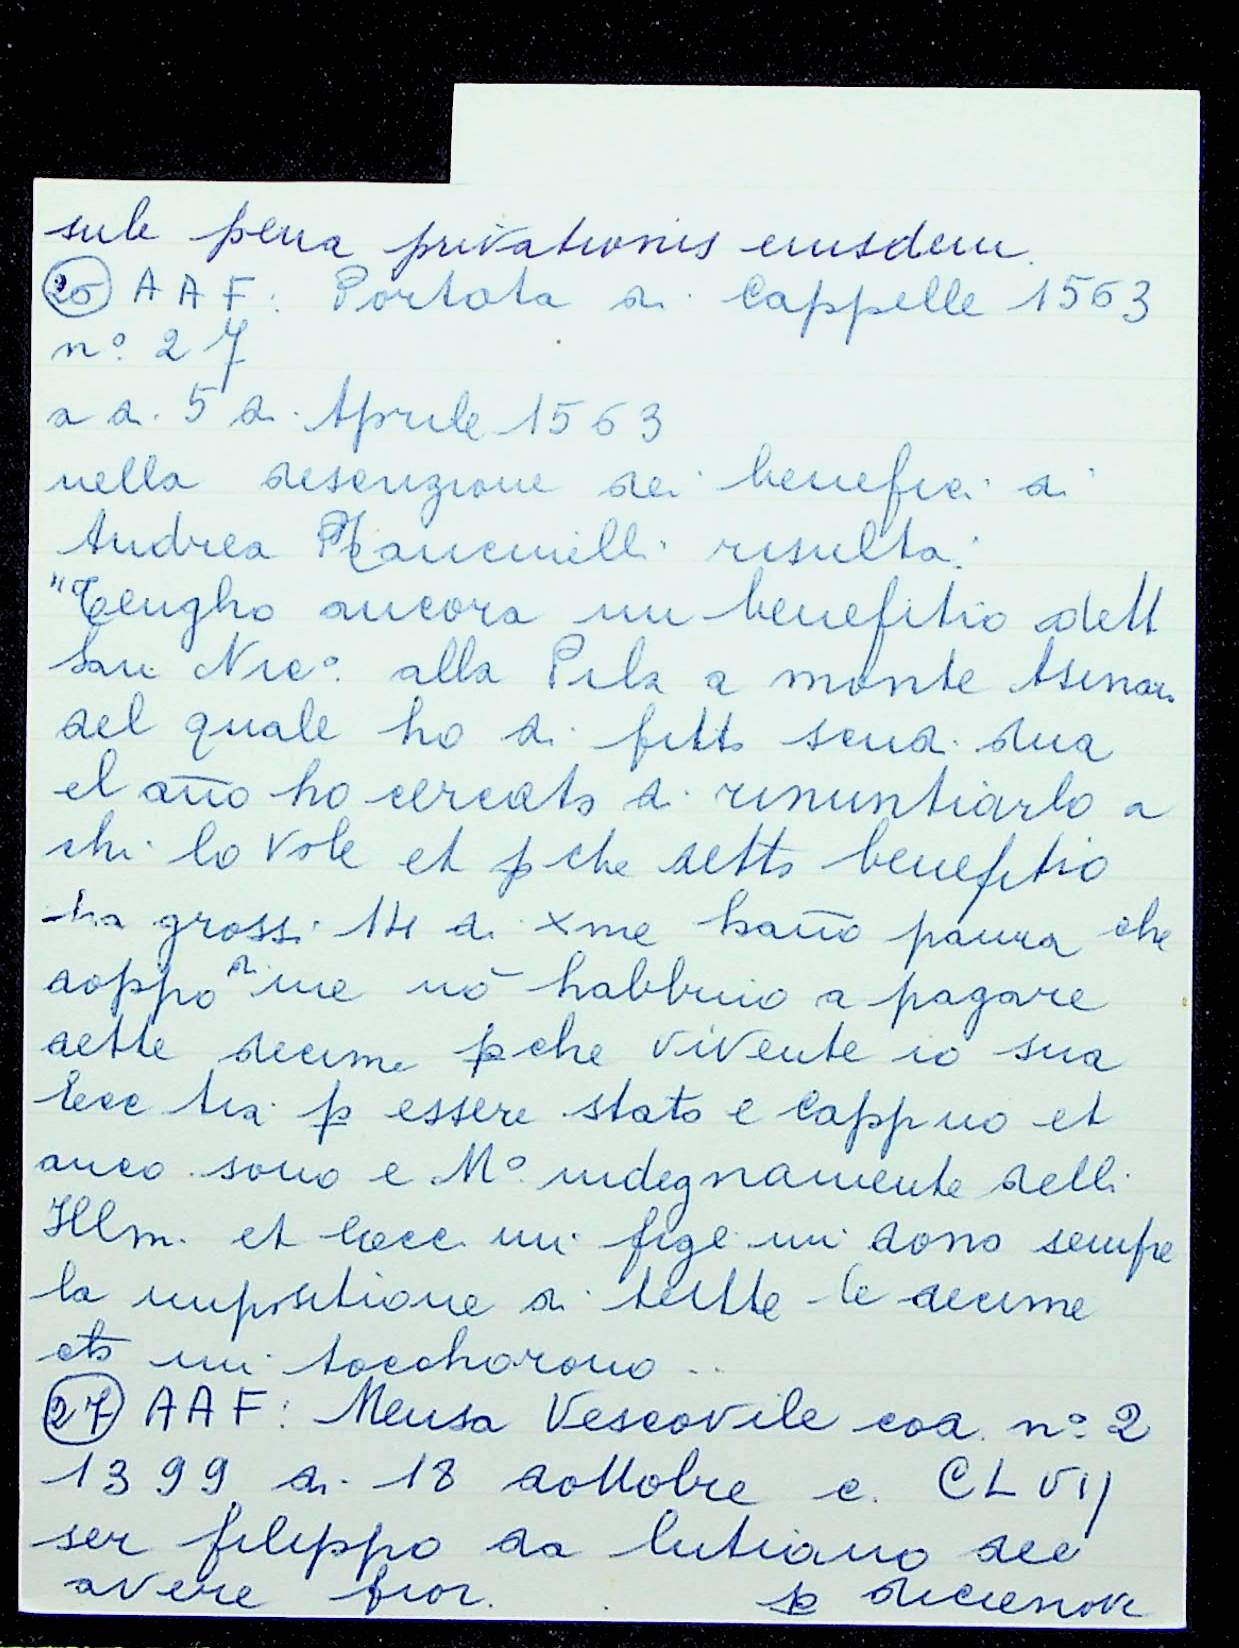 sub pena privationis eiusdem.
26 AAF: Portata di Cappelle 1563
n° 27
a di 5 di Aprile 1563
nella descrizione dei benefici di
Andrea Mancinelli risulta:
"Tengho ancora un benefitio dett
San Nic° alla Pila a monte Asinar.
del quale ho di fitto scudi dua
el año ho cercato di rinuntiarlo a
chi lo vole et pche detto benefitio
ha grossi 14 di xme haño paura che
doppo di me nō habbino a pagare
dette decime pche vivente io sua
Ecc tia p essere stato e Cappno et
anco sono e M° indegnamente delli
Illm. et Ecce mi figl mi dono sempe
la impositione di tutte le decime
etc mi tocchorono ..
27 AAF: Mensa Vescovile cod. n° 2
1399 di 18 dottobre c. CLVIJ
ser filippo da lutiano dee
avere fior. p dicienove